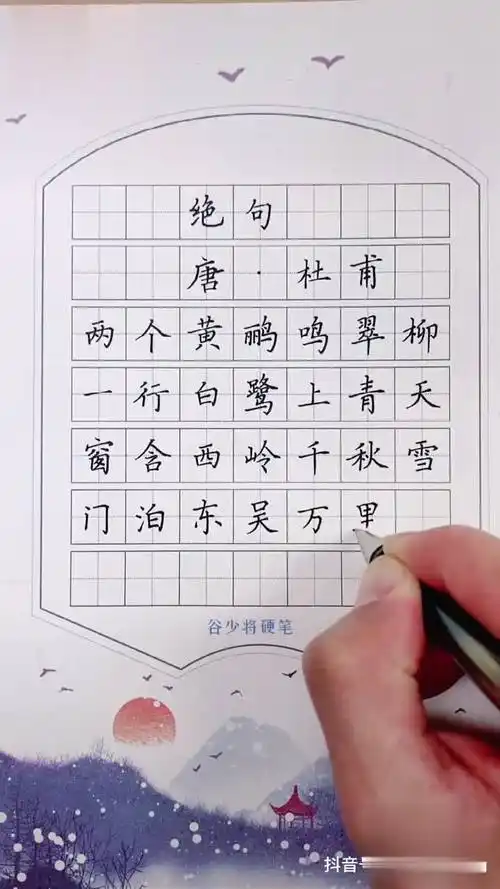 绝句
唐·杜甫
两个黄鹂鸣翠柳
一行白鹭上青天
窗含西岭千秋雪
门泊东吴万里
谷少将硬笔
抖音号